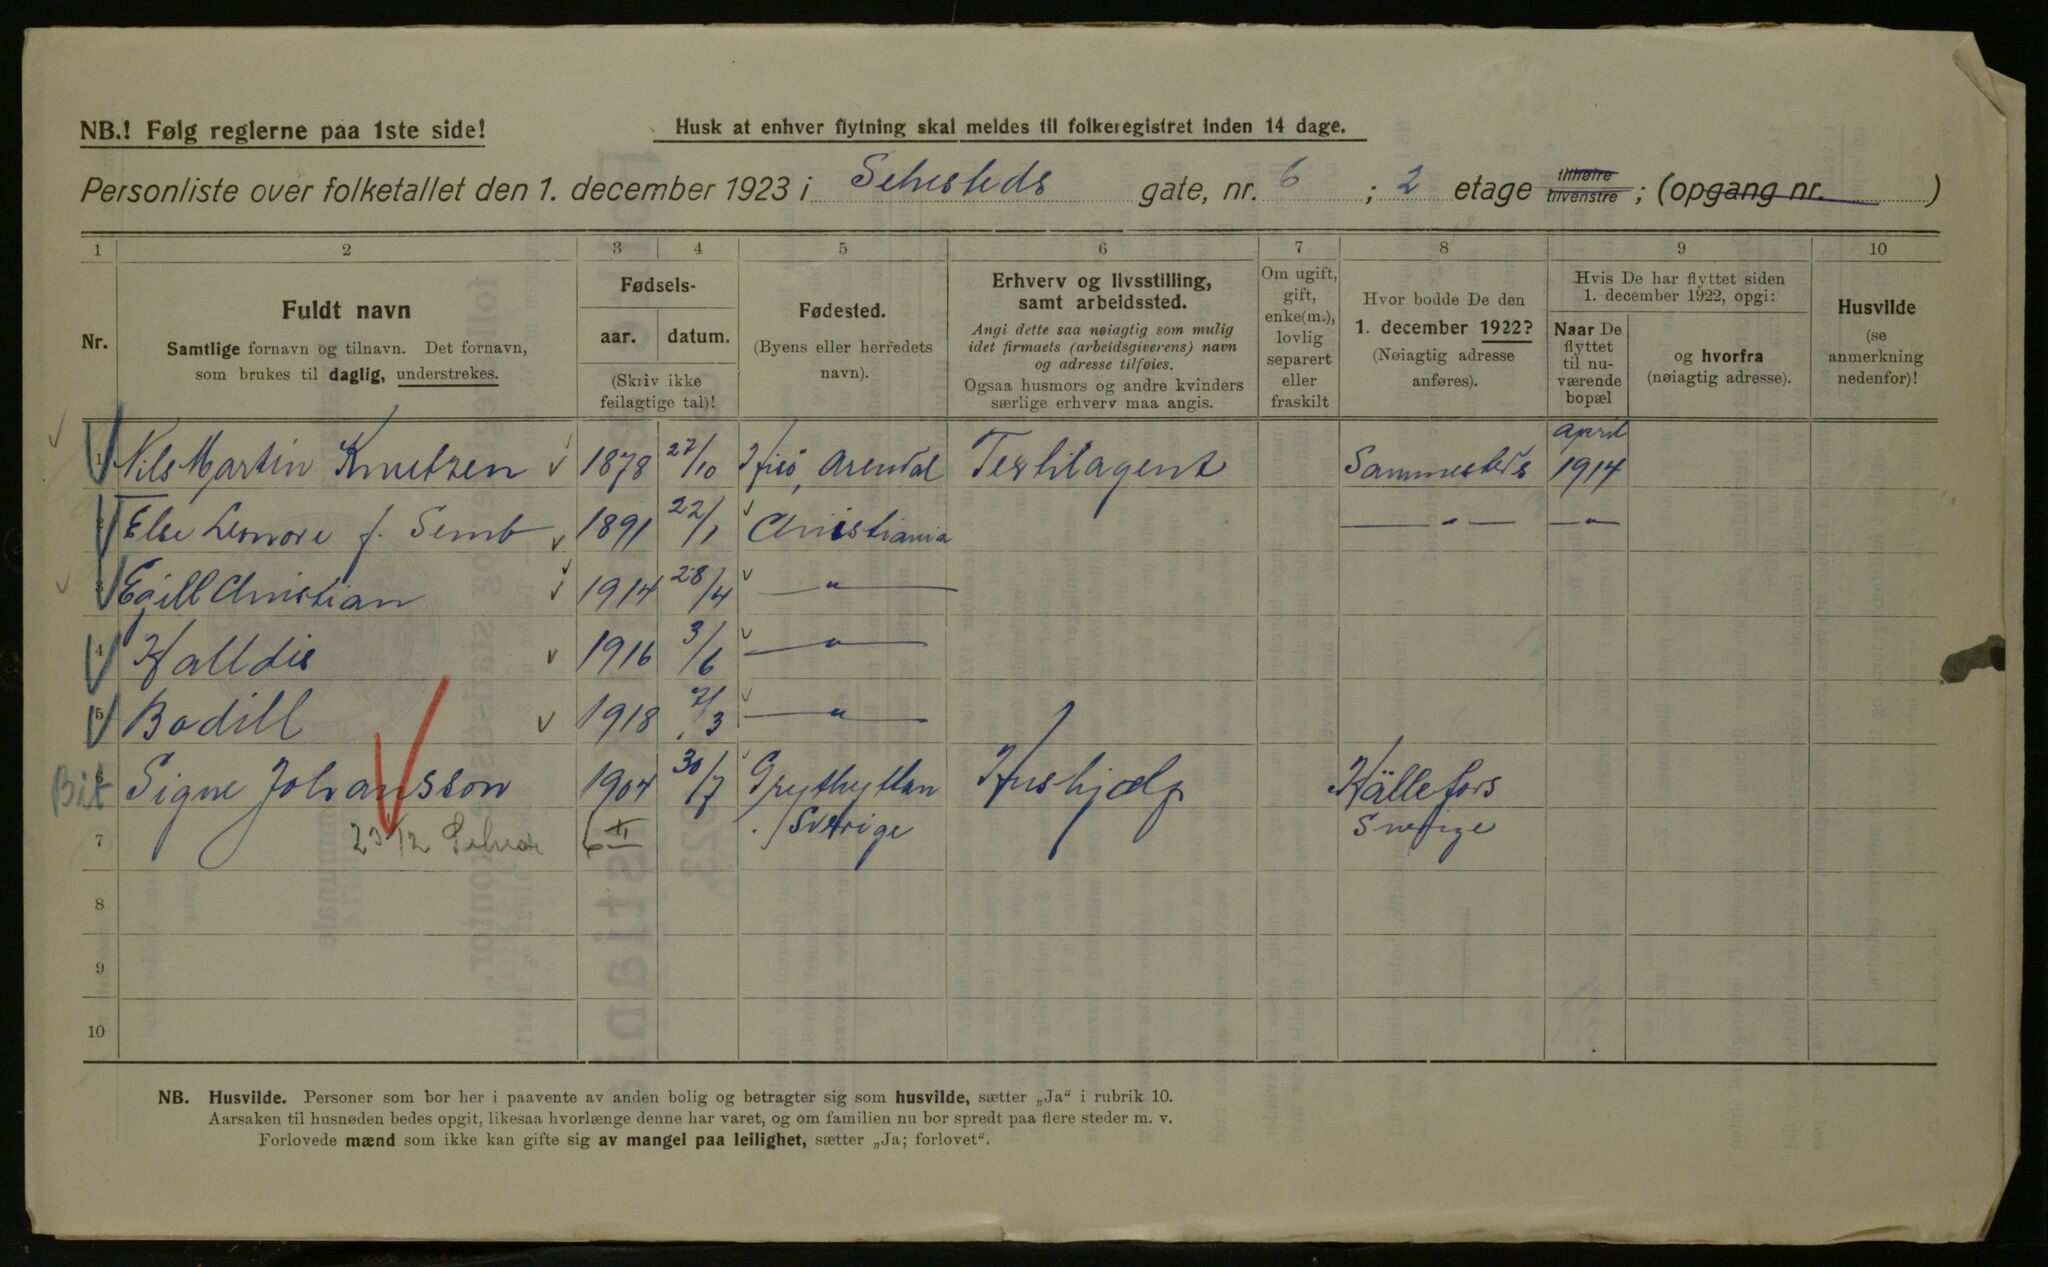 NB.! Følg reglerne paa 1ste side!
Husk at enhver flytning skal meldes til folkeregistret inden 14 dage.
Personliste over folketallet den 1. december 1923 i Sehesteds gate, nr. 6 ; 2 etage tilhøire tilvenstre ; (opgang nr. )
1 2 3 4 5 6 7 8 9 10
Nr.
Fuldt navn
Samtlige fornavn og tilnavn. Det fornavn,
som brukes til daglig, understrekes.
Fødsels-
aar. datum.
(Skriv ikke
feilagtige tal)!
Fødested.
(Byens eller herredets
navn).
Erhverv og livsstilling,
samt arbeidssted.
Angi dette saa nøiagtig som mulig
idet firmaets (arbeidsgiverens) navn
og adresse tilføies.
Ogsaa husmors og andre kvinders
særlige erhverv maa angis.
Om ugift,
gift,
enke(m.),
lovlig
separert
eller
fraskilt
Hvor bodde De den
1. december 1922?
(Nøiagtig adresse
anføres).
Hvis De har flyttet siden
1. december 1922, opgi:
Naar De
flyttet
til nu-
værende
bopæl
og hvorfra
(nøiagtig adresse).
Husvilde
(se
anmerkning
nedenfor)!
april
1 Nils Martin Knutzen 1878 27/10 Hisö, Arendal Textilagent Sammesteds 1914
2 Else Leonore f. Semb 1891 22/1 Christiania — " — — " —
3 Egill Christian 1914 28/4 — " —
4 Halldis 1916 3/6 — " —
5 Bodill 1918 7/3 — " —
Bit 6 Signe Johansson 1904 30/7 Grythyttan Hushjælp Hällefors
7 23/12 6 II Sverige Sverige
8
9
10
NB. Husvilde. Personer som bor her i paavente av anden bolig og betragter sig som husvilde, sætter „Ja“ i rubrik 10.
Aarsaken til husnøden bedes opgit, likesaa hvorlænge denne har varet, og om familien nu bor spredt paa flere steder m. v.
Forlovede mænd som ikke kan gifte sig av mangel paa leilighet, sætter „Ja; forlovet“.